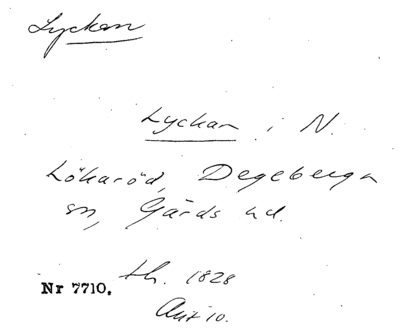 Lyckan
Lyckan i N.
Lökaröd, Degeberga
sn, Gärds hd.
Nr 7710. th. 1828
Akt 10.